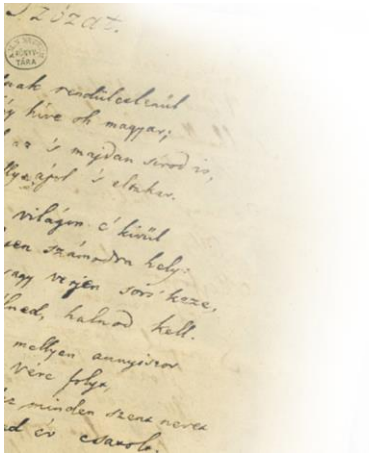 Szózat.
KÖNYV-
TÁRA
nak rendületlenül
híve oh magyar;
az 's majdan sirod is,
ápol 's eltakar.
világon e' kivül
sen számodra hely:
vagy verjen sors' keze,
lned, halnod kell.
mellyen annyiszor
vére folyt,
minden szent nevet
d év csatolt.